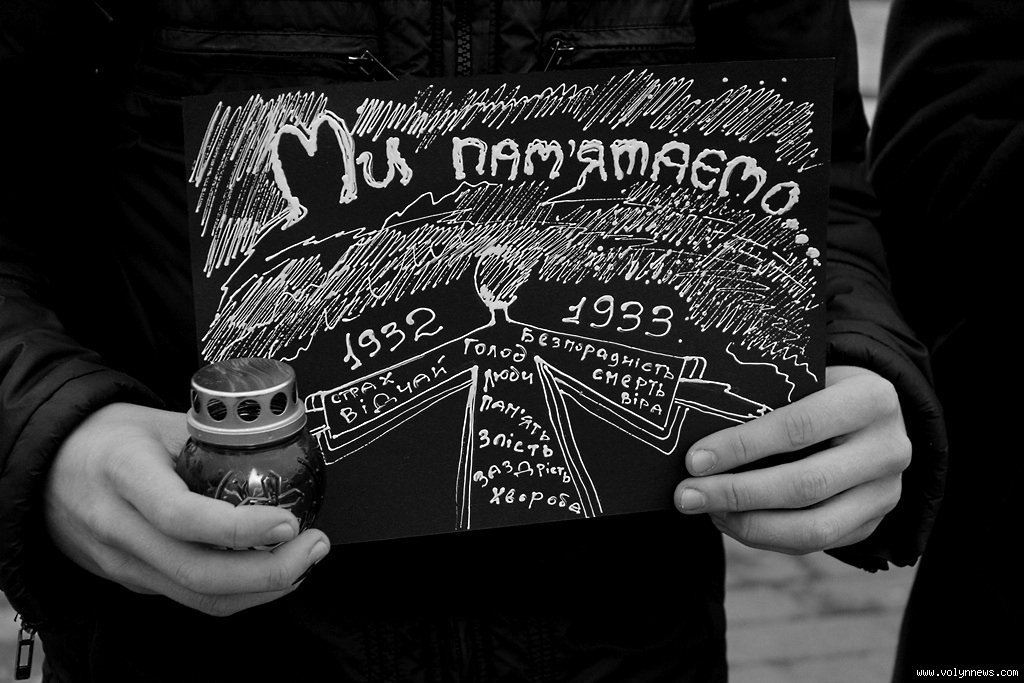 Ми пам'ятаємо...
1932 1933.
страх
відчай
голод
люди
пам'ять
злість
заздрість
хвороба
Безпорадність
смерть
віра
www.volynnews.com